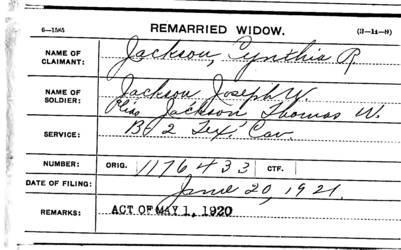 6—1585 REMARRIED WIDOW. (3-14-8)
NAME OF CLAIMANT: Jackson, Cynthia R.
NAME OF SOLDIER: Jackson Joseph W.
Alias Jackson Thomas W.
SERVICE: B+ 2 Tex. Cav.
NUMBER: ORIG. 1176433 CTF.
DATE OF FILING: June 20, 1921.
REMARKS: ACT OF MAY 1, 1920